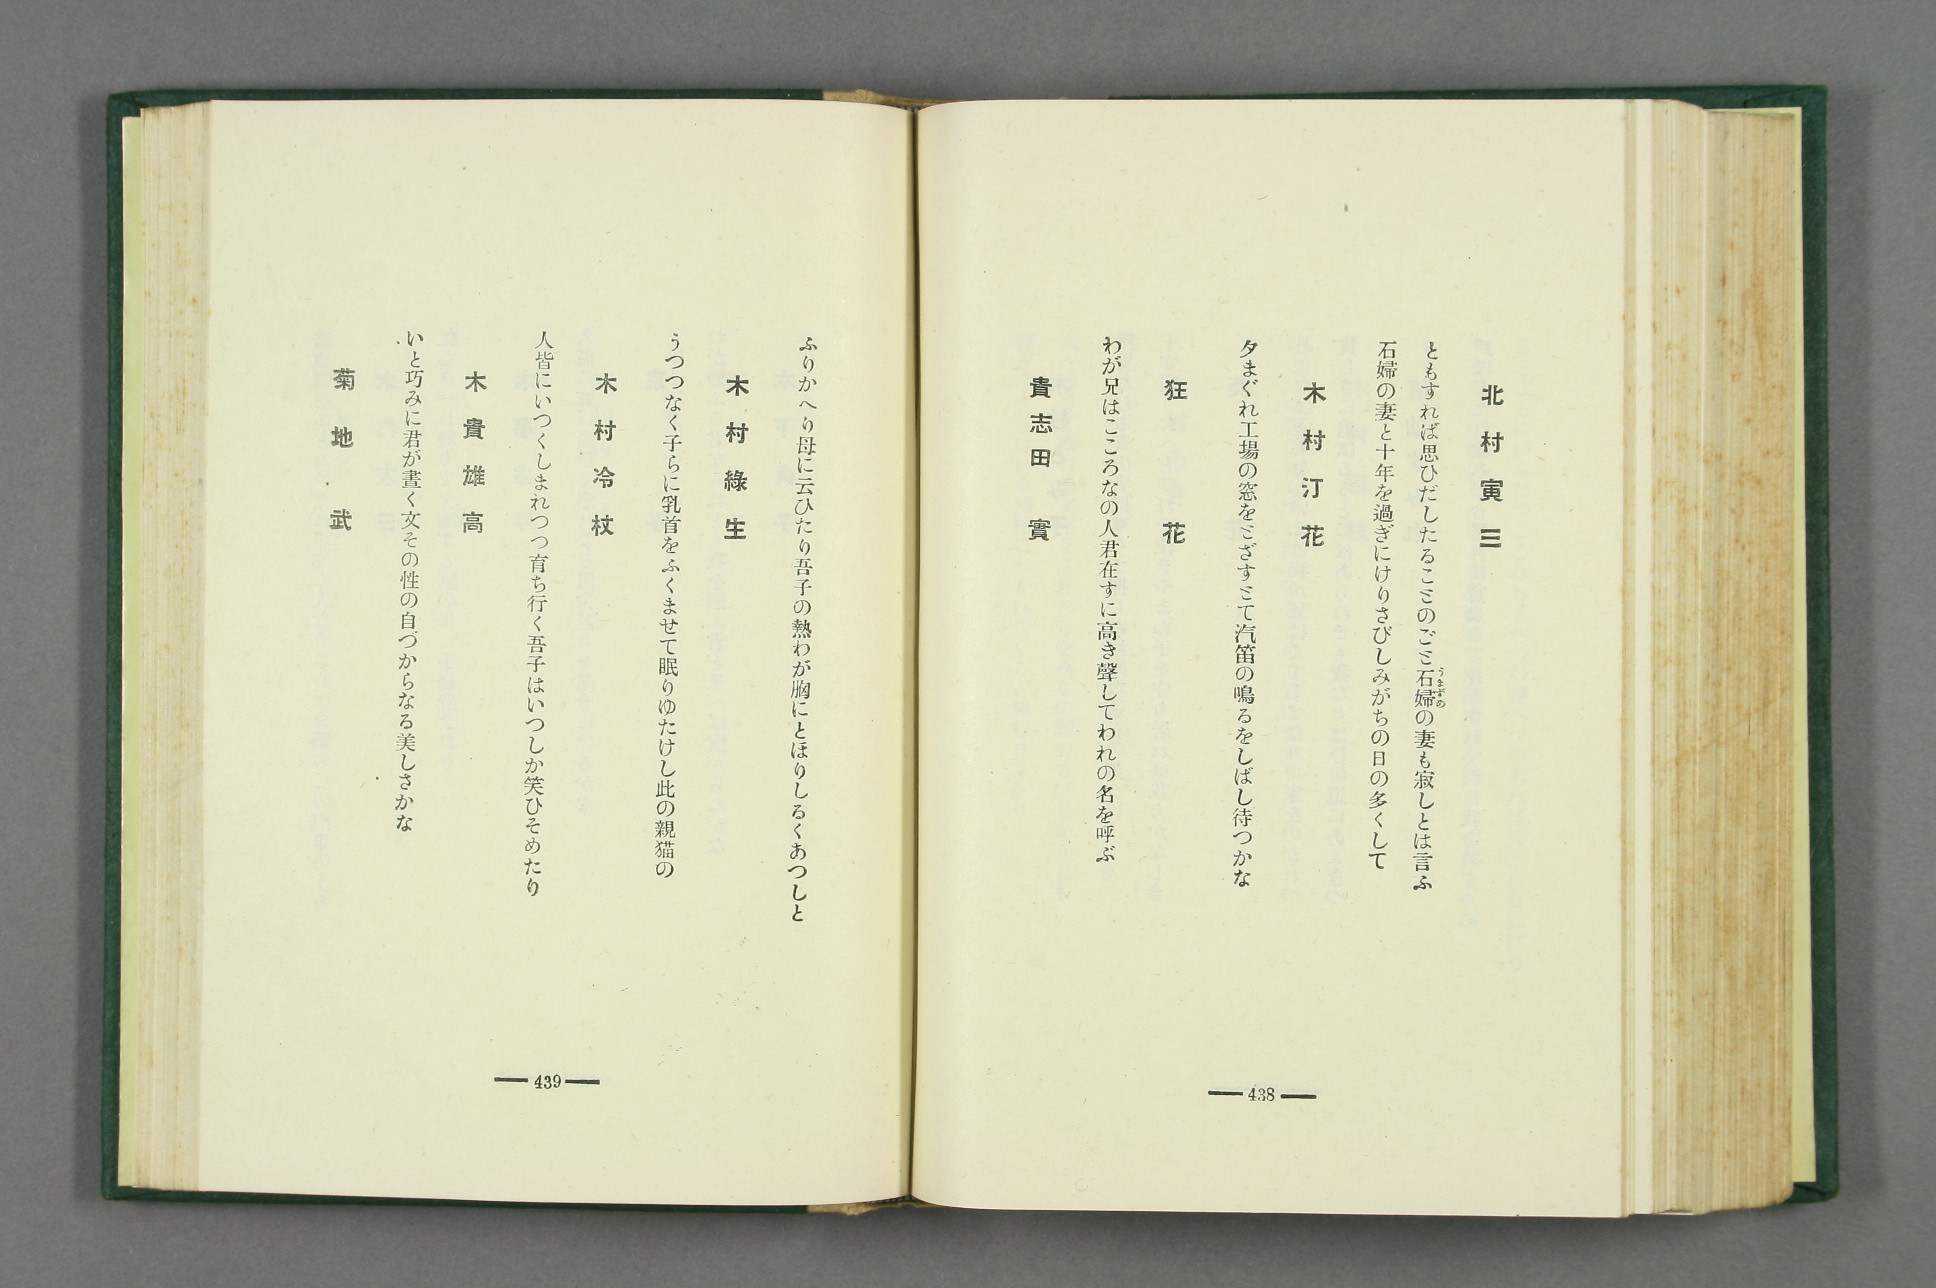 北村寅三
ともすれば思ひだしたることのごと石婦の妻も寂しとは言ふ
うまずめ
石婦の妻と十年を過ぎにけりさびしみがちの日の多くして
木村汀花
夕まぐれ工場の窓をとざすとて汽笛の鳴るをしばし待つかな
狂花
わが兄はこころなの人君在すに高き聲してわれの名を呼ぶ
貴志田實
438
ふりかへり母に云ひたり吾子の熱わが胸にとほりしるくあつしと
木村綠生
うつつなく子らに乳首をふくませて眠りゆたけし此の親猫の
木村冷杖
人皆にいつくしまれつつ育ち行く吾子はいつしか笑ひそめたり
木貴雄高
いと巧みに君が書く文その性の自づからなる美しさかな
菊地武
439